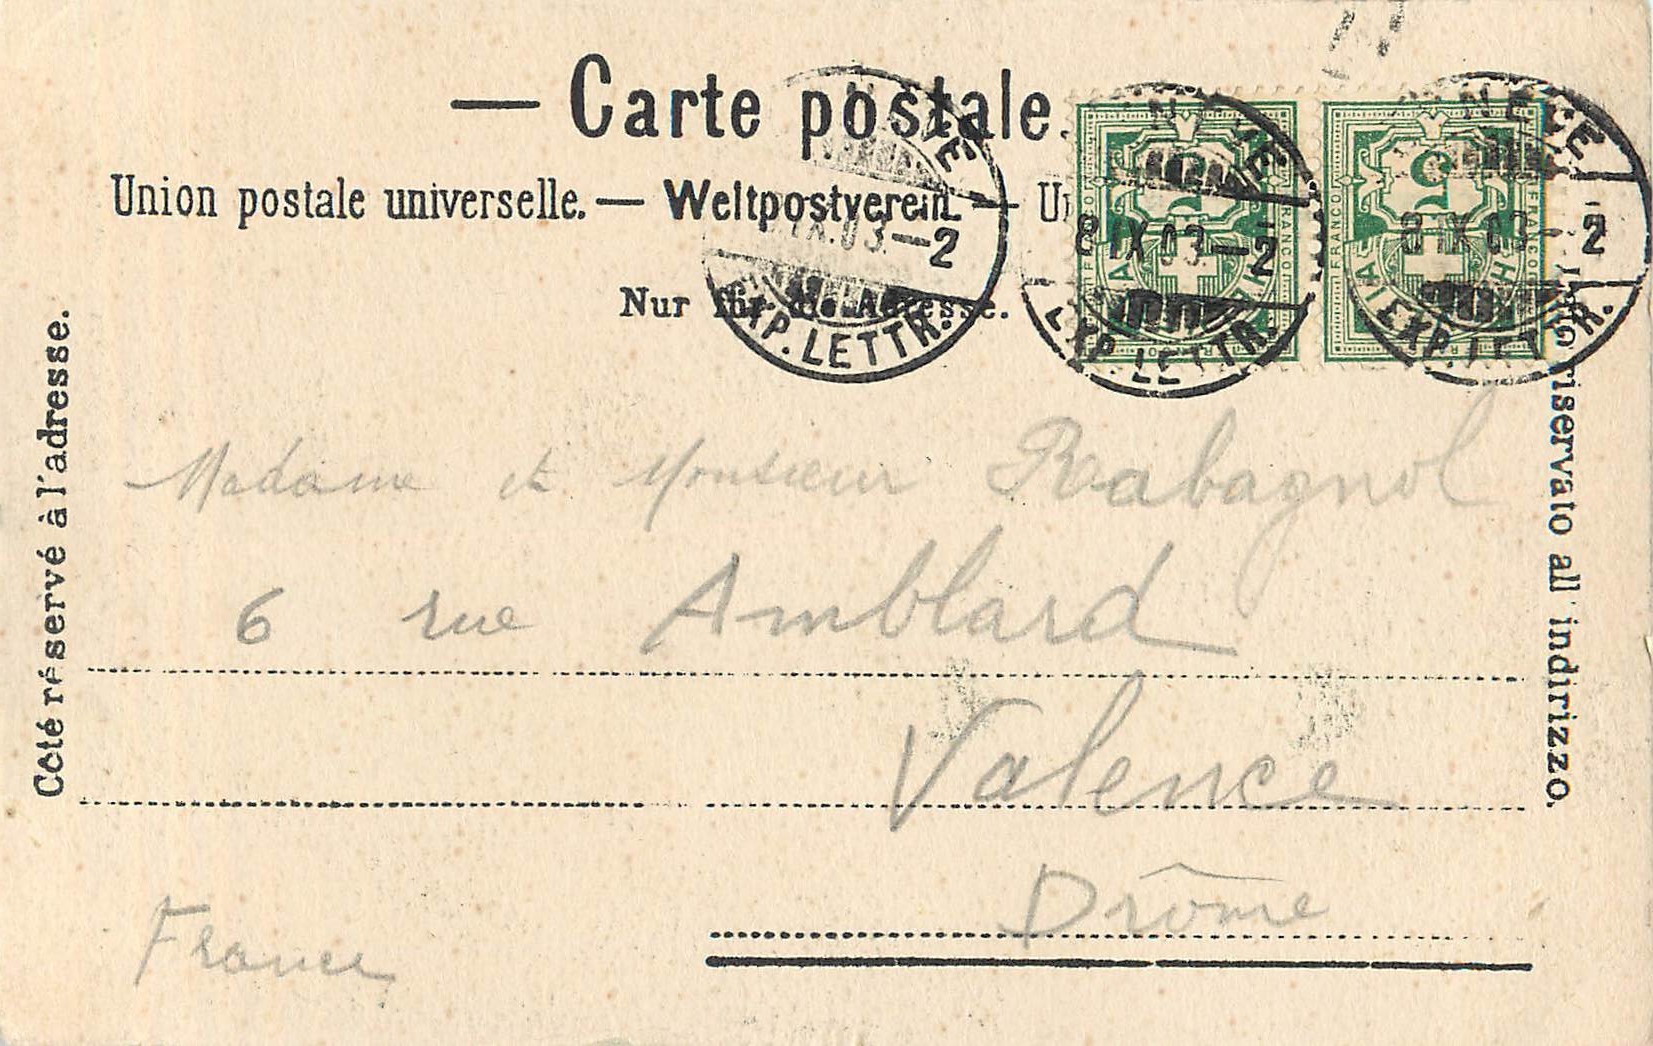 — Carte postale.
Union postale universelle. — Weltpostverein. — U
Nur für die Adresse.
Côté réservé à l'adresse.
riservato all indirizzo.
5
5
FRANCO
FRANCO
IX.03—2
EXP. LETTR.
8 IX 03—2
EXP. LETTR.
IX 03—2
EXP. LETTR.
Madame et Monsieur Rabagnol
6 rue Amblard
Valence
Drôme
France